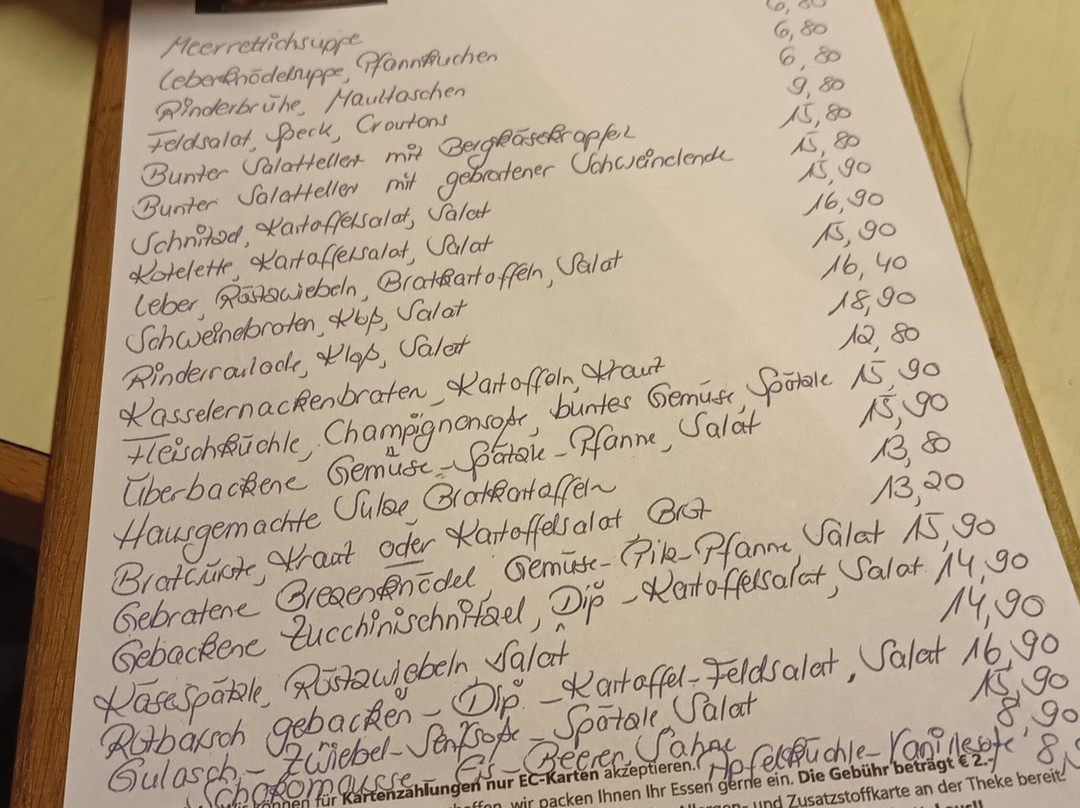 Meerrettichsuppe 6,80
Leberknödelsuppe, Pfannkuchen 6,80
Rinderbrühe, Maultaschen 6,80
Feldsalat, Speck, Croutons 9,80
Bunter Salatteller mit Bergkäsekrapfel 15,80
Bunter Salatteller mit gebratener Schweinelende 15,80
Schnitzel, Kartoffelsalat, Salat 15,90
Kotelette, Kartoffelsalat, Salat 16,90
Leber, Röstzwiebeln, Bratkartoffeln, Salat 15,90
Schweinebraten, Kloß, Salat 16,40
Rinderroulade, Kloß, Salat 18,90
Kasselernackenbraten, Kartoffeln, Kraut 12,80
Fleischküchle, Champignonsoße, buntes Gemüse, Spätzle 15,90
Überbackene Gemüse-Spätzle-Pfanne, Salat 15,90
Hausgemachte Sulze Bratkartoffeln 13,80
Bratwürste, Kraut oder Kartoffelsalat Brot 13,20
Gebratene Brezenknödel, Gemüse-Pilz-Pfanne, Salat 15,90
Gebackene Zucchinischnitzel, Dip - Kartoffelsalat, Salat 14,90
Käsespätzle, Röstzwiebeln Salat 14,90
Rotbarsch gebacken - Dip - Kartoffel-Feldsalat, Salat 16,90
Gulasch - Zwiebel-Senfsoße - Spätzle, Salat 15,90
Schokomousse - Eis - Beeren, Sahne 8,90
Apfelküchle - Vanillesoße 8,
können für Kartenzahlungen nur EC-Karten akzeptieren. Die Gebühr beträgt € 2.-
wir packen Ihnen Ihr Essen gerne ein.
und Zusatzstoffkarte an der Theke bereit!